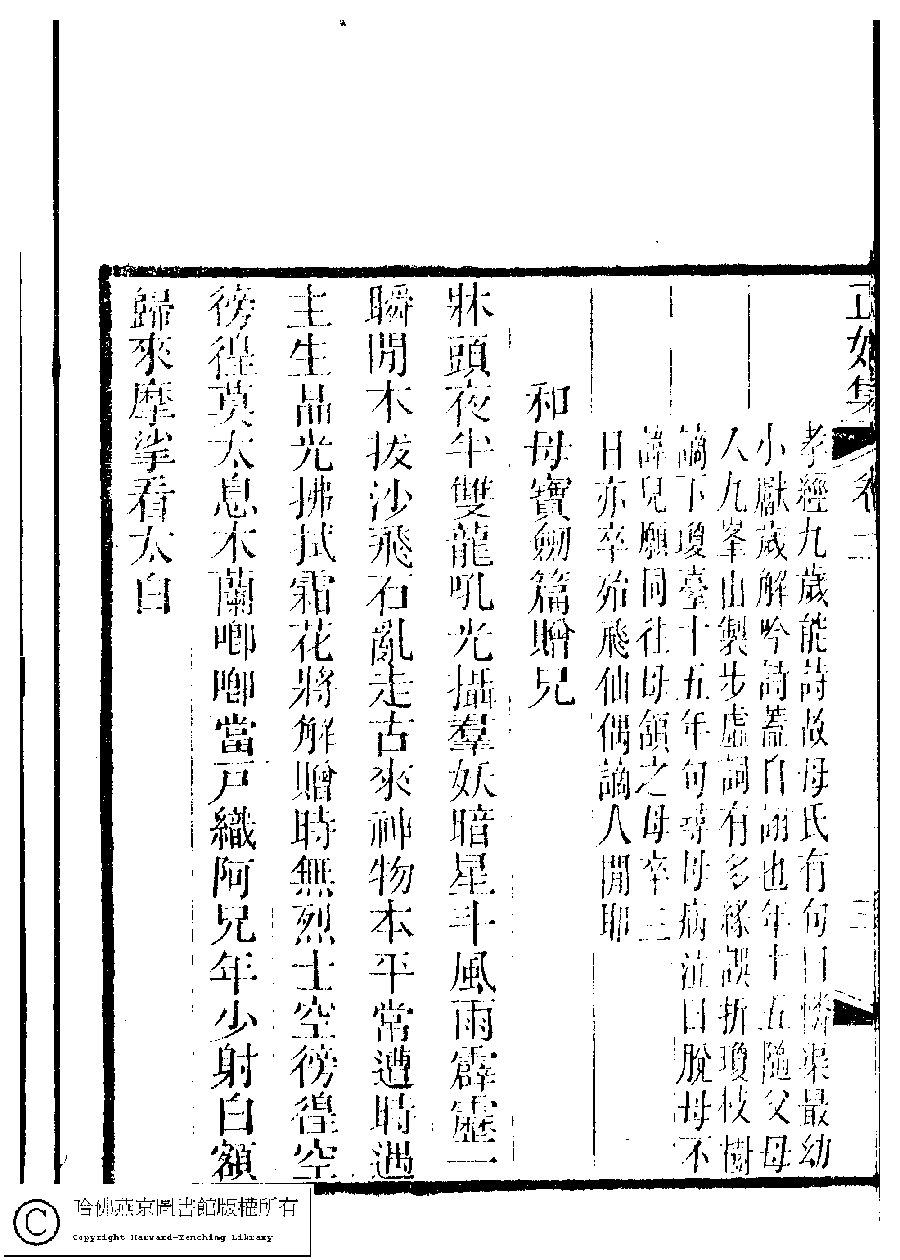 正始集 卷二 三
孝經九歲能詩故母氏有句曰憐渠最幼
小獻歲解吟詩蓋自詡也年十五隨父母
入九峯山製步虛詞有多緣誤折瓊枝樹
謫下瓊臺十五年句尋母病泣曰脫母不
諱兒願同往母頷之母卒三
日亦卒殆飛仙偶謫人閒耶
和母寶劒篇贈兄
牀頭夜半雙龍吼光攝羣妖暗星斗風雨霹靂一
瞬閒木拔沙飛石亂走古來神物本平常遭時遇
主生品光拂拭霜花將解贈時無烈士空徬徨空
徬徨莫太息木蘭唧唧當戸織阿兄年少射白額
歸來摩挲看太白
哈佛燕京圖書館版權所有
Copyright Harvard-Yenching Library